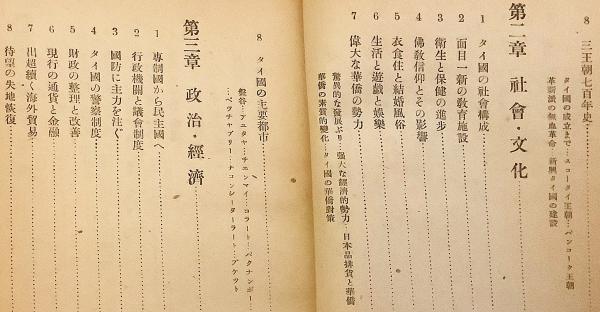 8 三王朝七百年史
タイ國の成立まで…スコータイ王朝…バンコーク王朝
革新派の無血革命…新興タイ國の建設
第二章 社會・文化
1 タイ國の社會構成
2 面目一新の敎育施設
3 衞生と保健の進步
4 佛敎信仰とその影響
5 衣食住と結婚風俗
6 生活と遊戲と娛樂
7 偉大な華僑の勢力
驚異的な發展ぶり…强大な經濟的勢力…日本品排貨と華僑
華僑の素質的變化…タイ國の華僑對策
8 タイ國の主要都市
盤谷…アユタヤ…チエンマイ…コラート…パクナンポー
ペッチャブリー…ナコンシータマラート…プケット
第三章 政治・經濟
1 專制國から民主國へ
2 行政機關と議會制度
3 國防に主力を注ぐ
4 タイ國の警察制度
5 財政の整理と改善
6 現行の通貨と金融
7 出超續く海外貿易
8 待望の失地恢復